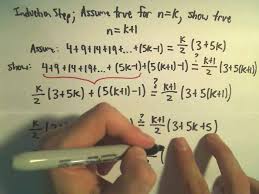 Induction Step: Assume true for n=k, show true
n=k+1
Assume: 4+9+14+19+...+(5k-1) = k/2 (3+5k)
Show: 4+9+14+19+...+(5k-1)+(5(k+1)-1) ?= k+1/2 (3+5(k+1))
k/2 (3+5k) + (5(k+1)-1) ?= k+1/2 (3+5(k+1))
k/2 (3 ?= k+1/2 (3+5k+5)